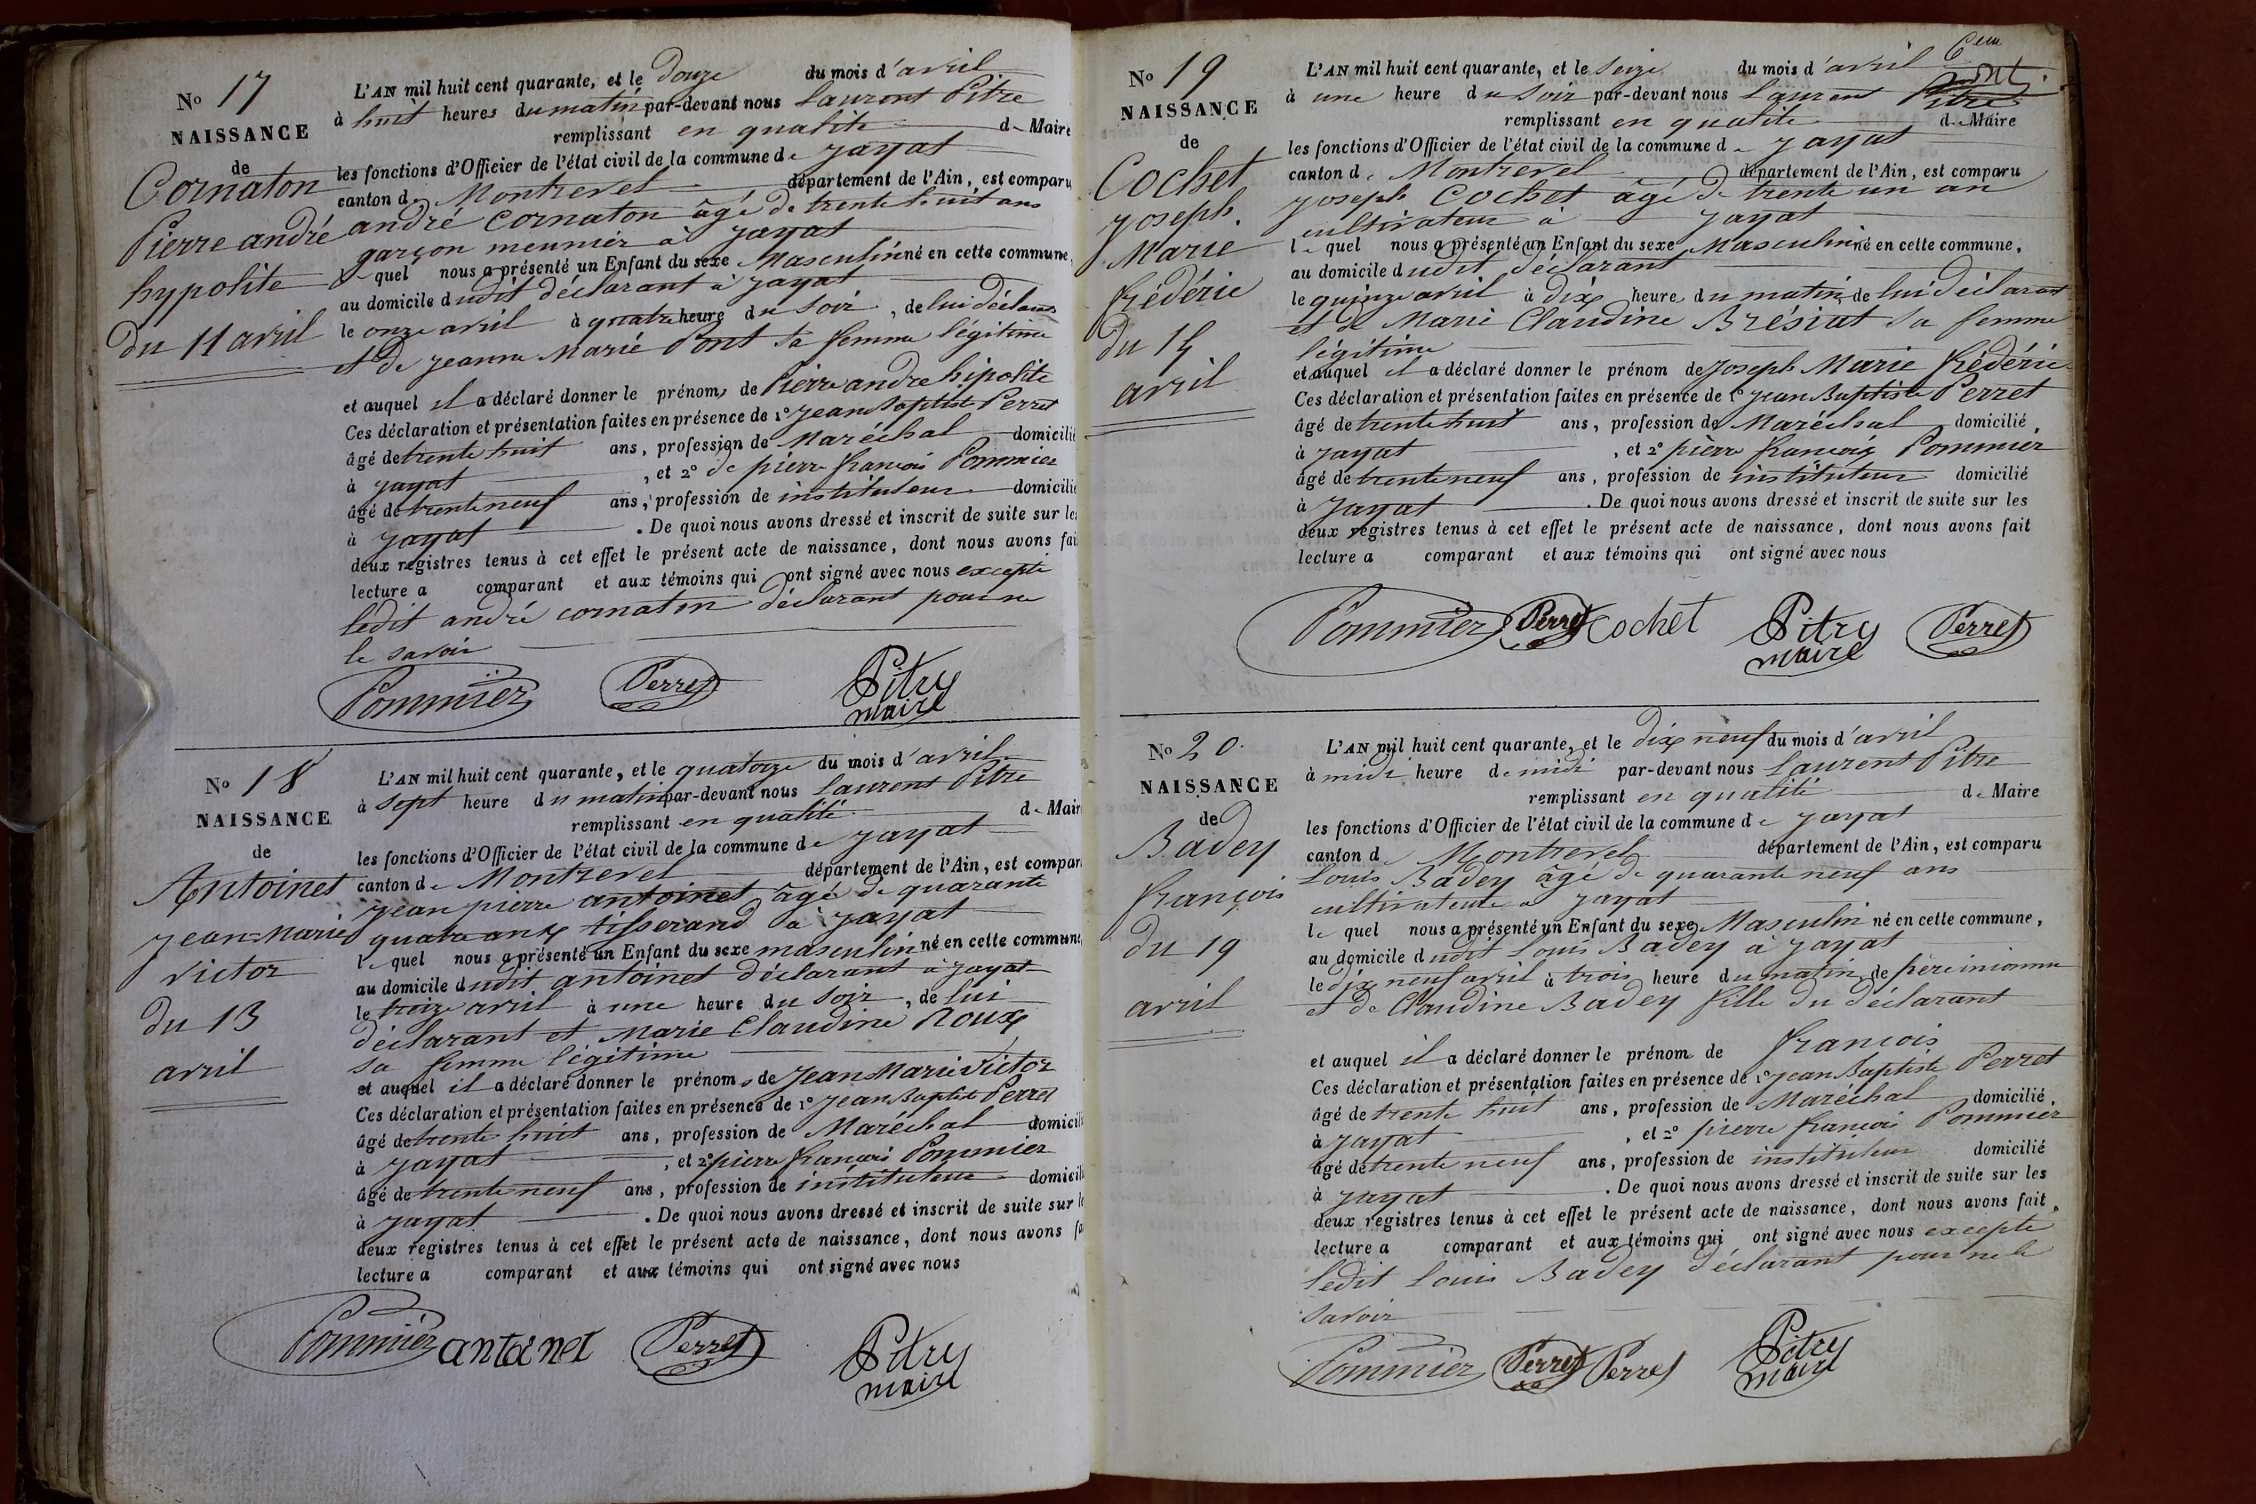 N° 17
NAISSANCE
de
Cornaton
Pierre andré
hypolite
du 11 avril
L'AN mil huit cent quarante, et le douze du mois d'avril
à huit heures du matin par-devant nous Laurent Pitre
remplissant en qualité de Maire
les fonctions d'Officier de l'état civil de la commune de Jayat
canton de Montrevel département de l'Ain, est comparu
andré Cornaton âgé de trente huit ans
garçon meunier à Jayat
le quel nous a présenté un Enfant du sexe Masculin né en cette commune,
au domicile dudit déclarant à Jayat
le onze avril à quatre heure du soir, de lui déclarant
et de jeanne Marie Pont sa femme légitime
et auquel il a déclaré donner le prénoms de Pierre andre hipolite
Ces déclaration et présentation faites en présence de 1° jean Baptiste Perret
âgé de trente huit ans, profession de Maréchal domicilié
à Jayat, et 2° de pierre françois Pommier
âgé de trente neuf ans, profession de instituteur domicilié
à Jayat. De quoi nous avons dressé et inscrit de suite sur les
deux registres tenus à cet effet le présent acte de naissance, dont nous avons fai
lecture a comparant et aux témoins qui ont signé avec nous excepte
ledit andré cornaton déclarant pour ne
le savoir
Pommier Perret Pitre
maire
N° 18
NAISSANCE
de
Antoinet
Jean-Marie
Victor
du 13
avril
L'AN mil huit cent quarante, et le quatorze du mois d'avril
à sept heure du matin par-devant nous Laurent Pitre
remplissant en qualité de Mair
les fonctions d'Officier de l'état civil de la commune de Jayat
canton de Montrevel département de l'Ain, est compar
jean pierre antoinet âgé de quarante
quatre ans tisserand à Jayat
le quel nous a présenté un Enfant du sexe masculin né en cette commune
au domicile dudit antoinet déclarant à Jayat
le treize avril à une heure du soir, de lui
déclarant et Marie Claudine Roux
sa femme légitime
et auquel il a déclaré donner le prénoms de Jean Marie Victor
Ces déclaration et présentation faites en présence de 1° jean Baptiste Perret
âgé de trente huit ans, profession de Maréchal domicili
à Jayat, et 2° pierre françois Pommier
âgé de trente neuf ans, profession de instituteur domicili
à Jayat. De quoi nous avons dressé et inscrit de suite sur le
deux registres tenus à cet effet le présent acte de naissance, dont nous avons fa
lecture a comparant et aux témoins qui ont signé avec nous
Pommier antoinet Perret Pitre
maire
N° 19
NAISSANCE
de
Cochet
joseph
Marie
frédéric
du 15
avril
L'AN mil huit cent quarante, et le seize du mois d'avril
à une heure du soir par-devant nous Laurent Pitre
remplissant en qualité de Maire
les fonctions d'Officier de l'état civil de la commune de Jayat
canton de Montrevel département de l'Ain, est comparu
joseph Cochet âgé de trente un an
cultivateur à Jayat
le quel nous a présenté un Enfant du sexe Masculin né en cette commune,
au domicile dudit déclarant
le quinze avril à dix heure du matin, de lui déclarant
et de Marie Claudine Brésiat sa femme
légitime
et auquel il a déclaré donner le prénom de joseph Marie frédéric
Ces déclaration et présentation faites en présence de 1° jean Baptiste Perret
âgé de trente huit ans, profession de Maréchal domicilié
à Jayat, et 2° pierre françois Pommier
âgé de trente neuf ans, profession de instituteur domicilié
à Jayat. De quoi nous avons dressé et inscrit de suite sur les
deux registres tenus à cet effet le présent acte de naissance, dont nous avons fait
lecture a comparant et aux témoins qui ont signé avec nous
Pommier Perret Cochet Pitre Perret
maire
N° 20
NAISSANCE
de
Badey
françois
du 19
avril
L'AN mil huit cent quarante, et le dix neuf du mois d'avril
à midi heure de midi par-devant nous Laurent Pitre
remplissant en qualité de Maire
les fonctions d'Officier de l'état civil de la commune de Jayat
canton de Montrevel département de l'Ain, est comparu
Louis Badey âgé de quarante neuf ans
cultivateur a Jayat
le quel nous a présenté un Enfant du sexe Masculin né en cette commune,
au domicile dudit Louis Badey à Jayat
le dix neuf avril à trois heure du matin, de père inconnu
et de Claudine Badey fille du déclarant
et auquel il a déclaré donner le prénom de françois
Ces déclaration et présentation faites en présence de 1° jean Baptiste Perret
âgé de trente huit ans, profession de Maréchal domicilié
à Jayat, et 2° pierre françois Pommier
âgé de trente neuf ans, profession de instituteur domicilié
à Jayat. De quoi nous avons dressé et inscrit de suite sur les
deux registres tenus à cet effet le présent acte de naissance, dont nous avons fait
lecture a comparant et aux témoins qui ont signé avec nous excepte
ledit Louis Badey déclarant pour ne le
savoir
Pommier Perret Perret Pitre
maire